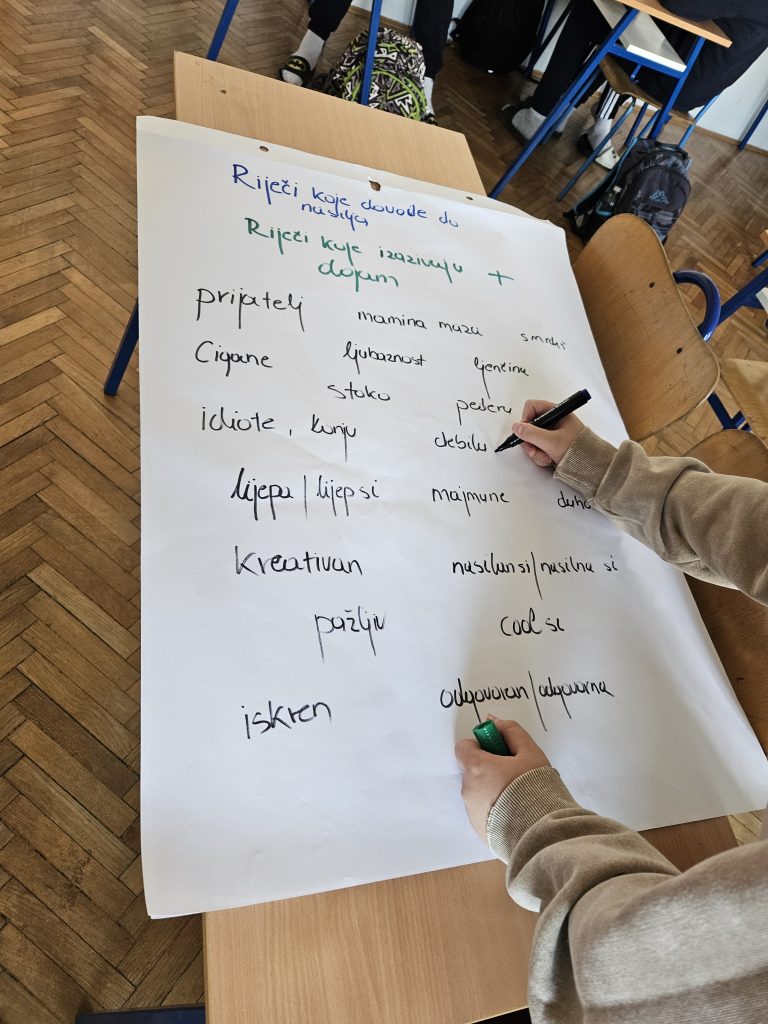 Riječi koje dovode do
nasilja
Riječi koje izazivaju +
dojam
prijatelj mamina maza
Cigane ljubaznost ljenčina
stoko pederu
idiote, konju debilu
lijepa/lijep si majmune
kreativan nasilan si/nasilna si
pažljiv cool si
iskren odgovoran/odgovorna